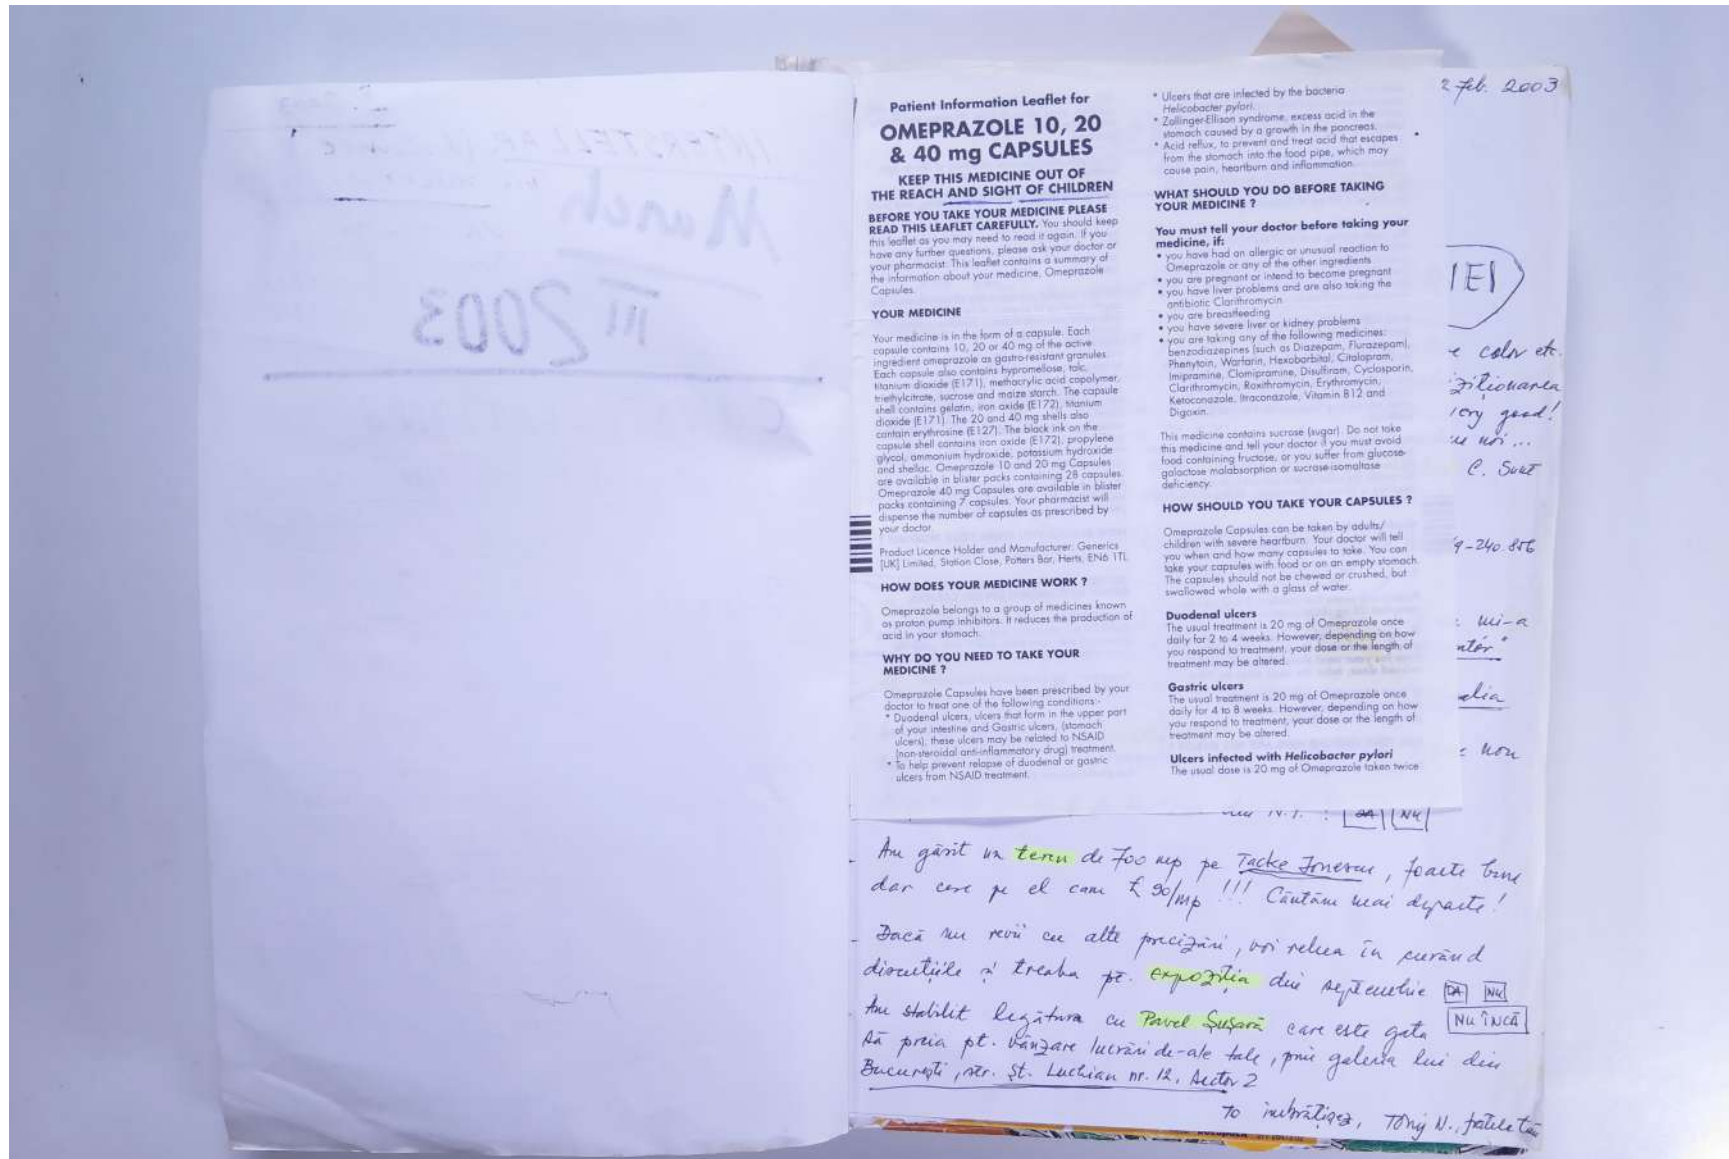 March
III 2003
Patient Information Leaflet for
OMEPRAZOLE 10, 20
& 40 mg CAPSULES
KEEP THIS MEDICINE OUT OF
THE REACH AND SIGHT OF CHILDREN
BEFORE YOU TAKE YOUR MEDICINE PLEASE
READ THIS LEAFLET CAREFULLY. You should keep
this leaflet as you may need to read it again. If you
have any further questions, please ask your doctor or
your pharmacist. This leaflet contains a summary of
the information about your medicine, Omeprazole
Capsules.
YOUR MEDICINE
Your medicine is in the form of a capsule. Each
capsule contains 10, 20 or 40 mg of the active
ingredient omeprazole as gastro-resistant granules.
Each capsule also contains hypromellose, talc,
titanium dioxide (E171), methacrylic acid copolymer,
triethylcitrate, sucrose and maize starch. The capsule
shell contains gelatin, iron oxide (E172), titanium
dioxide (E171). The 20 and 40 mg shells also
contain erythrosine (E127). The black ink on the
capsule shell contains iron oxide (E172), propylene
glycol, ammonium hydroxide, potassium hydroxide
and shellac. Omeprazole 10 and 20 mg Capsules
are available in blister packs containing 28 capsules.
Omeprazole 40 mg Capsules are available in blister
packs containing 7 capsules. Your pharmacist will
dispense the number of capsules as prescribed by
your doctor.
Product Licence Holder and Manufacturer: Generics
[UK] Limited, Station Close, Potters Bar, Herts, EN6 1TL
HOW DOES YOUR MEDICINE WORK ?
Omeprazole belongs to a group of medicines known
as proton pump inhibitors. It reduces the production of
acid in your stomach.
WHY DO YOU NEED TO TAKE YOUR
MEDICINE ?
Omeprazole Capsules have been prescribed by your
doctor to treat one of the following conditions:-
* Duodenal ulcers, ulcers that form in the upper part
of your intestine and Gastric ulcers, (stomach
ulcers), these ulcers may be related to NSAID
(non-steroidal anti-inflammatory drug) treatment.
* To help prevent relapse of duodenal or gastric
ulcers from NSAID treatment.
* Ulcers that are infected by the bacteria
Helicobacter pylori.
* Zollinger-Ellison syndrome, excess acid in the
stomach caused by a growth in the pancreas.
* Acid reflux, to prevent and treat acid that escapes
from the stomach into the food pipe, which may
cause pain, heartburn and inflammation.
WHAT SHOULD YOU DO BEFORE TAKING
YOUR MEDICINE ?
You must tell your doctor before taking your
medicine, if:
• you have had an allergic or unusual reaction to
Omeprazole or any of the other ingredients
• you are pregnant or intend to become pregnant
• you have liver problems and are also taking the
antibiotic Clarithromycin
• you are breastfeeding
• you have severe liver or kidney problems
• you are taking any of the following medicines:
benzodiazepines (such as Diazepam, Flurazepam),
Phenytoin, Warfarin, Hexobarbital, Citalopram,
Imipramine, Clomipramine, Disulfiram, Cyclosporin,
Clarithromycin, Roxithromycin, Erythromycin,
Ketoconazole, Itraconazole, Vitamin B12 and
Digoxin.
This medicine contains sucrose (sugar). Do not take
this medicine and tell your doctor if you must avoid
food containing fructose, or you suffer from glucose-
galactose malabsorption or sucrase-isomaltase
deficiency.
HOW SHOULD YOU TAKE YOUR CAPSULES ?
Omeprazole Capsules can be taken by adults/
children with severe heartburn. Your doctor will tell
you when and how many capsules to take. You can
take your capsules with food or on an empty stomach.
The capsules should not be chewed or crushed, but
swallowed whole with a glass of water.
Duodenal ulcers
The usual treatment is 20 mg of Omeprazole once
daily for 2 to 4 weeks. However, depending on how
you respond to treatment, your dose or the length of
treatment may be altered.
Gastric ulcers
The usual treatment is 20 mg of Omeprazole once
daily for 4 to 8 weeks. However, depending on how
you respond to treatment, your dose or the length of
treatment may be altered.
Ulcers infected with Helicobacter pylori
The usual dose is 20 mg of Omeprazole taken twice
2 Feb. 2003
color etc.
good!
noi...
C. Sunt
9-240.856
mi-a
non
N.Y. : DA NU
- Am găsit un teren de 700 mp pe Tacke Ionescu, foarte bine
dar cere pe el cam £ 90/mp !!! Căutăm mai departe!
- Dacă nu revii cu alte precizări, voi relua în curând
discuțiile și treaba pt. expoziția din septembrie DA NU
Am stabilit legătura cu Pavel Șușară care este gata NU ÎNCĂ
să preia pt. vânzare lucrări de-ale tale, prin galeria lui din
București, str. Șt. Luchian nr. 12, Sector 2
Te îmbrățișez, Tony N., fratele tău